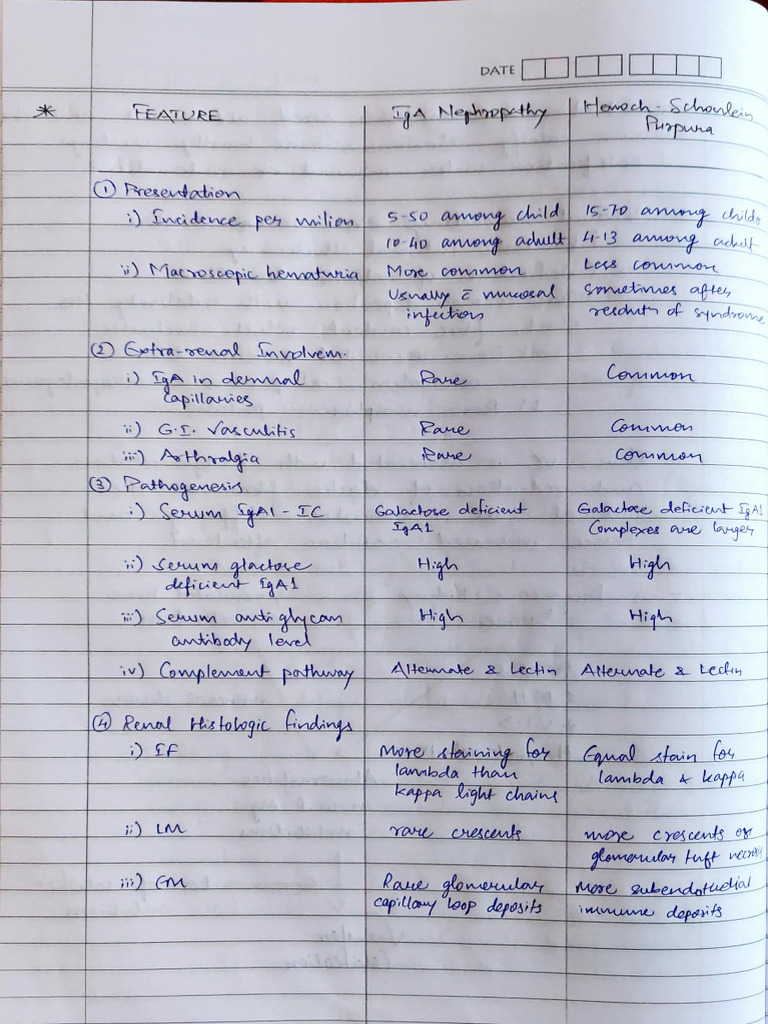 DATE
* FEATURE IgA Nephropathy Henoch-Schonlein
Purpura
① Presentation
i) Incidence per milion 5-50 among child 15-70 among childr
10-40 among adult 4-13 among adult
ii) Macroscopic hematuria More common Less common
Usually c̄ mucosal sometimes after
infection of syndrome
② Extra-renal Involvem.
i) IgA in dermal Rare Common
capillaries
ii) G.I. Vasculitis Rare Common
iii) Arthralgia Rare Common
③ Pathogenesis
i) Serum IgA1 - IC Galactose deficient Galactose deficient IgA1
IgA1 Complexes are larger
ii) Serum glactose High High
deficient IgA1
iii) Serum antiglycan High High
antibody level
iv) Complement pathway Alternate & Lectin Alternate & Lectin
④ Renal Histologic findings
i) IF More staining for Equal stain for
lambda than lambda & kappa
kappa light chains
ii) LM rare crescents more crescents or
glomerular tuft necros
iii) EM Rare glomerular More subendothelial
capillary loop deposits immune deposits